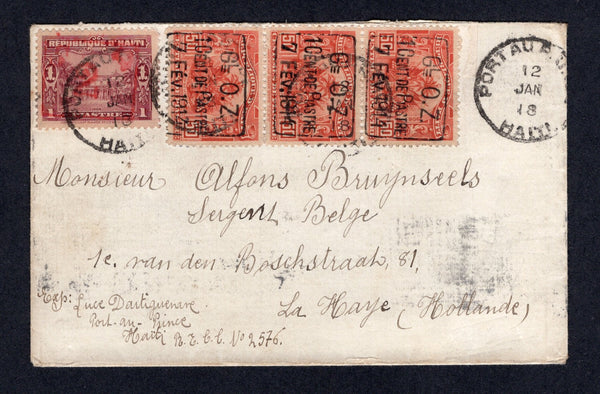 REPUBLIQUE D'HAITI
1 1
PIASTRE
GL O.Z.
1 CENT DE PIASTRE
7 FEV. 1914
50
GL O.Z.
1 CENT DE PIASTRE
7 FEV. 1914
50
GL O.Z.
1 CENT DE PIASTRE
7 FEV. 1914
50
PORT AU
12
JAN
18
HAITI
Monsieur Alfons Bruynseels
Sergent Belge
1e. van den Boschstraat, 81,
La Haye (Hollande)
Exp: Luce Dartiguenave
Port-au-Prince
Haiti B.T.C.C. No 2576.